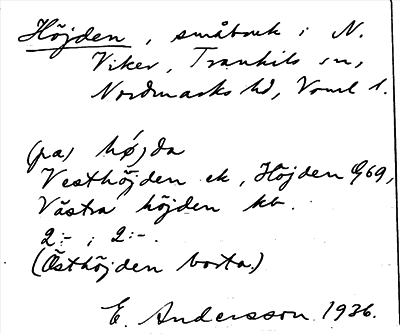 Höjden, småbruk i N.
Viker, Trankils sn,
Nordmarks hd, Vrml l.
(pa) højda
Vesthöjden ek, Höjden G69,
Västra höjden kb.
2:- ; 2:-.
(Östhöjden borta.)
E. Andersson 1936.